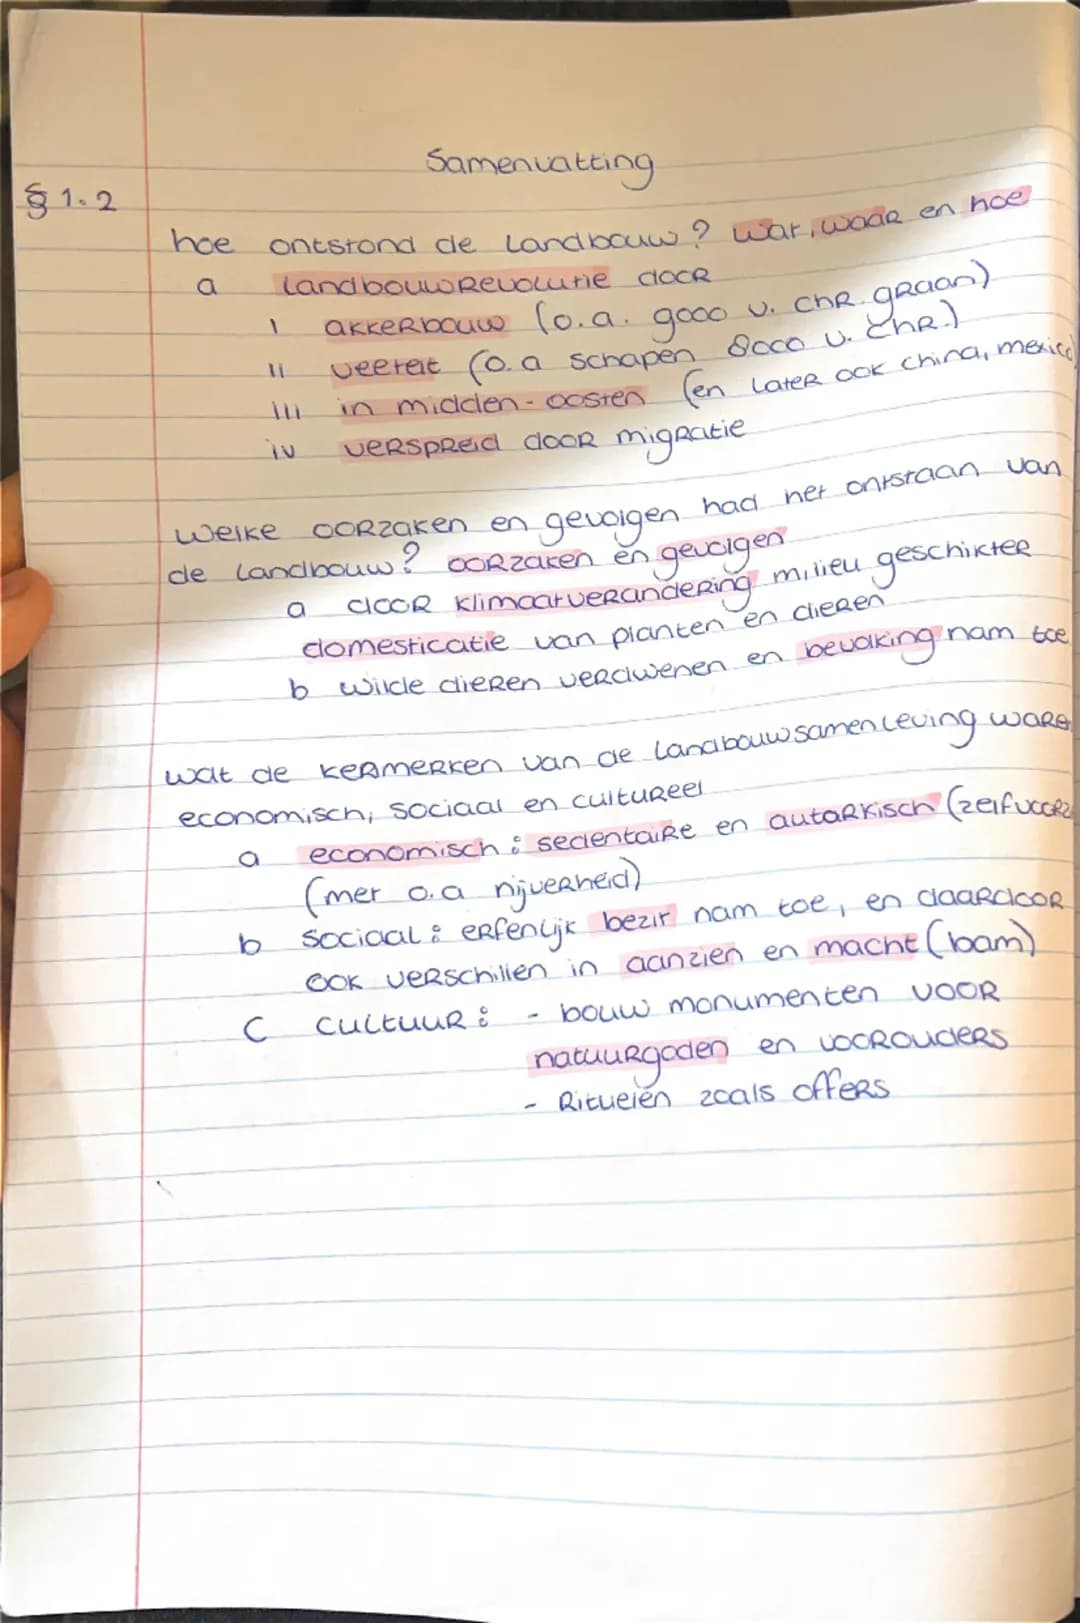 Samenvatting
§ 1.2
hoe ontstond de landbouw? wat, waar en hoe
a landbouwrevolutie door
i akkerbouw (o.a. 9000 v. chr. graan)
ii veeteelt (o.a schapen 8000 v. chr.)
iii in midden-oosten (en later ook china, mexico)
iv verspreid door migratie
welke oorzaken en gevolgen had het ontstaan van
de landbouw? oorzaken en gevolgen
a door klimaatverandering milieu geschikter
domesticatie van planten en dieren
b wilde dieren verdwenen en bevolking nam toe
wat de kenmerken van de landbouwsamenleving ware
economisch, sociaal en cultureel
a economisch: sedentaire en autarkisch (zelfvoorz
(met o.a nijverheid)
b sociaal: erfenlijk bezit nam toe, en daardoor
ook verschillen in aanzien en macht (bam)
c cultuur: - bouw monumenten voor
natuurgoden en voorouders
- Rituelen zoals offers